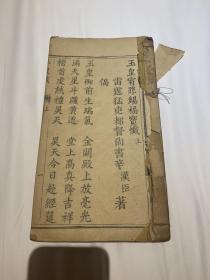 玉皇宥罪錫福寶懺
雷霆猛吏都督尚書辛漢臣著
偈
玉皇御前生瑞氣　金闕殿上放毫光
滿天星斗羅黃道　堂上高真降吉祥
稽首虔誠禮昊天　昊天今日赴經筵